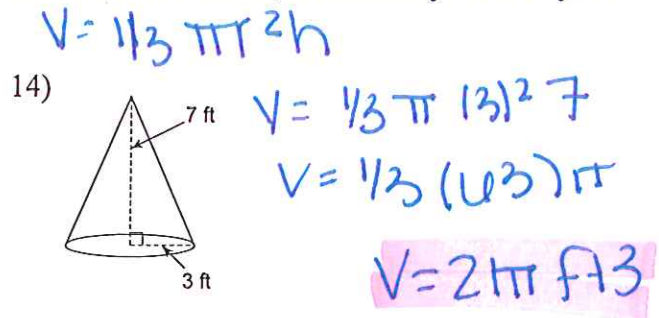 V = 1/3 πr²h
14)
7 ft
3 ft
V = 1/3 π (3)² 7
V = 1/3 (63) π
V = 21π ft3